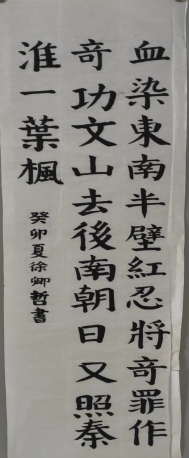 血染東南半壁紅忍將奇罪作
奇功文山去後南朝日又照秦
淮一葉楓
癸卯夏徐卿哲書